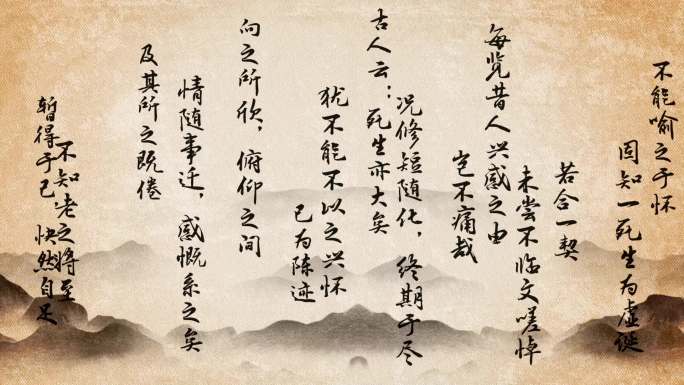 暂得于己，快然自足
不知老之将至
及其所之既倦
情随事迁，感慨系之矣
向之所欣，俯仰之间
已为陈迹
犹不能不以之兴怀
况修短随化，终期于尽
古人云：死生亦大矣
岂不痛哉
每览昔人兴感之由
若合一契
未尝不临文嗟悼
不能喻之于怀
固知一死生为虚诞